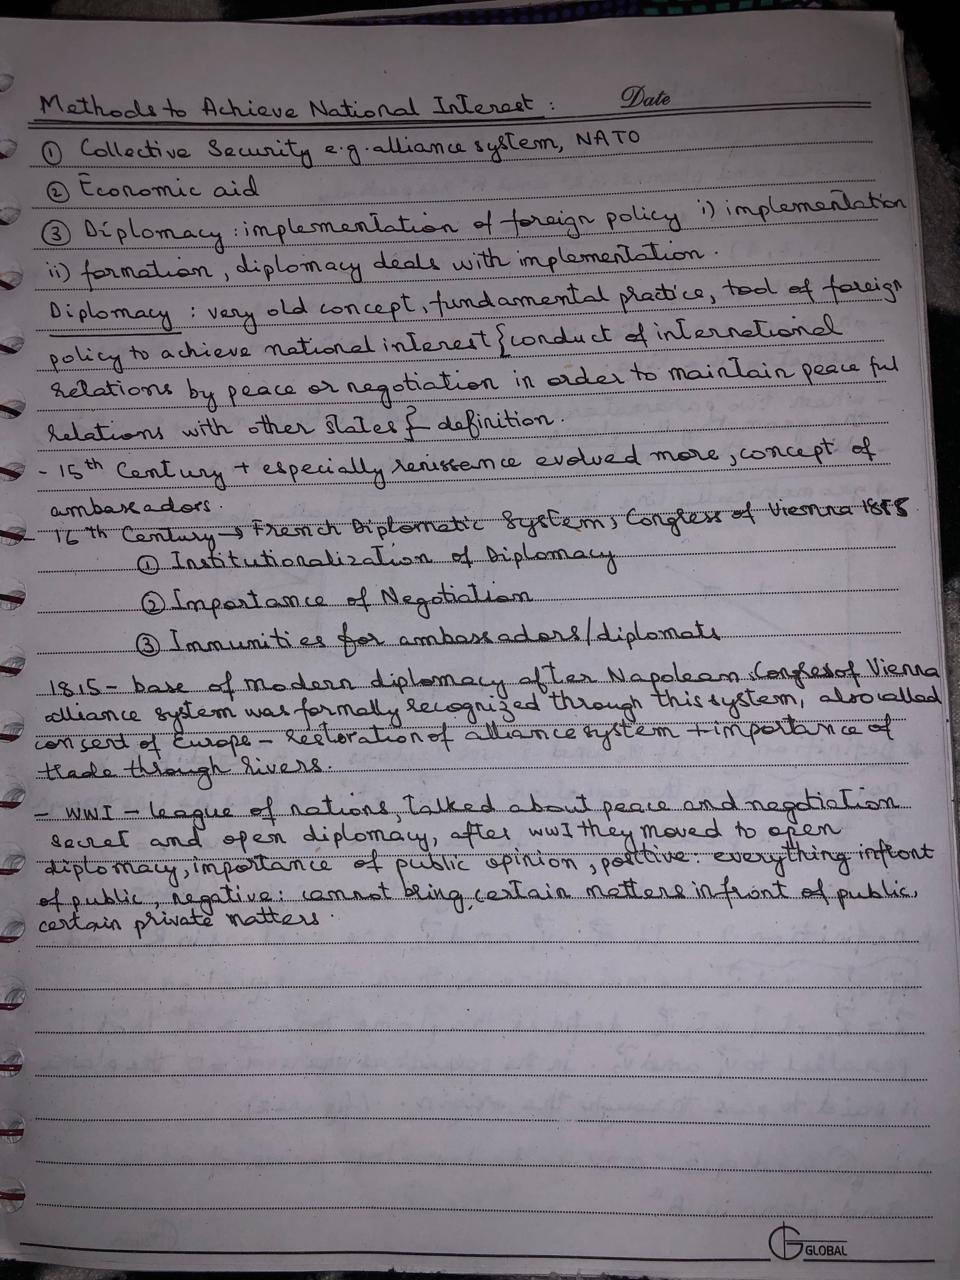 Methods to Achieve National Interest : Date
① Collective Security e.g. alliance system, NATO
② Economic aid
③ Diplomacy : implementation of foreign policy i) implementation
ii) formation, diplomacy deals with implementation.
Diplomacy : very old concept, fundamental practice, tool of foreign
policy to achieve national interest {conduct of international
relations by peace or negotiation in order to maintain peace ful
relations with other states} definition.
- 15th Century + especially renissence evolved more, concept of
ambassadors.
- 16th Century → French Diplomatic System, Congress of Vienna
① Institutionalization of Diplomacy
② Importance of Negotiation
③ Immunities for ambassadors/diplomats
1815 - base of modern diplomacy after Napolean, Congres of Vienna
alliance system was formally recognized through this system, also called
consert of Europe - restoration of alliance system + importance of
trade through rivers.
- WWI - league of nations, talked about peace and negotiation
secret and open diplomacy, after WWI they moved to open
diplomacy, importance of public opinion, positive: everything infront
of public, negative: cannot bring certain matters infront of public,
certain private matters.
GLOBAL